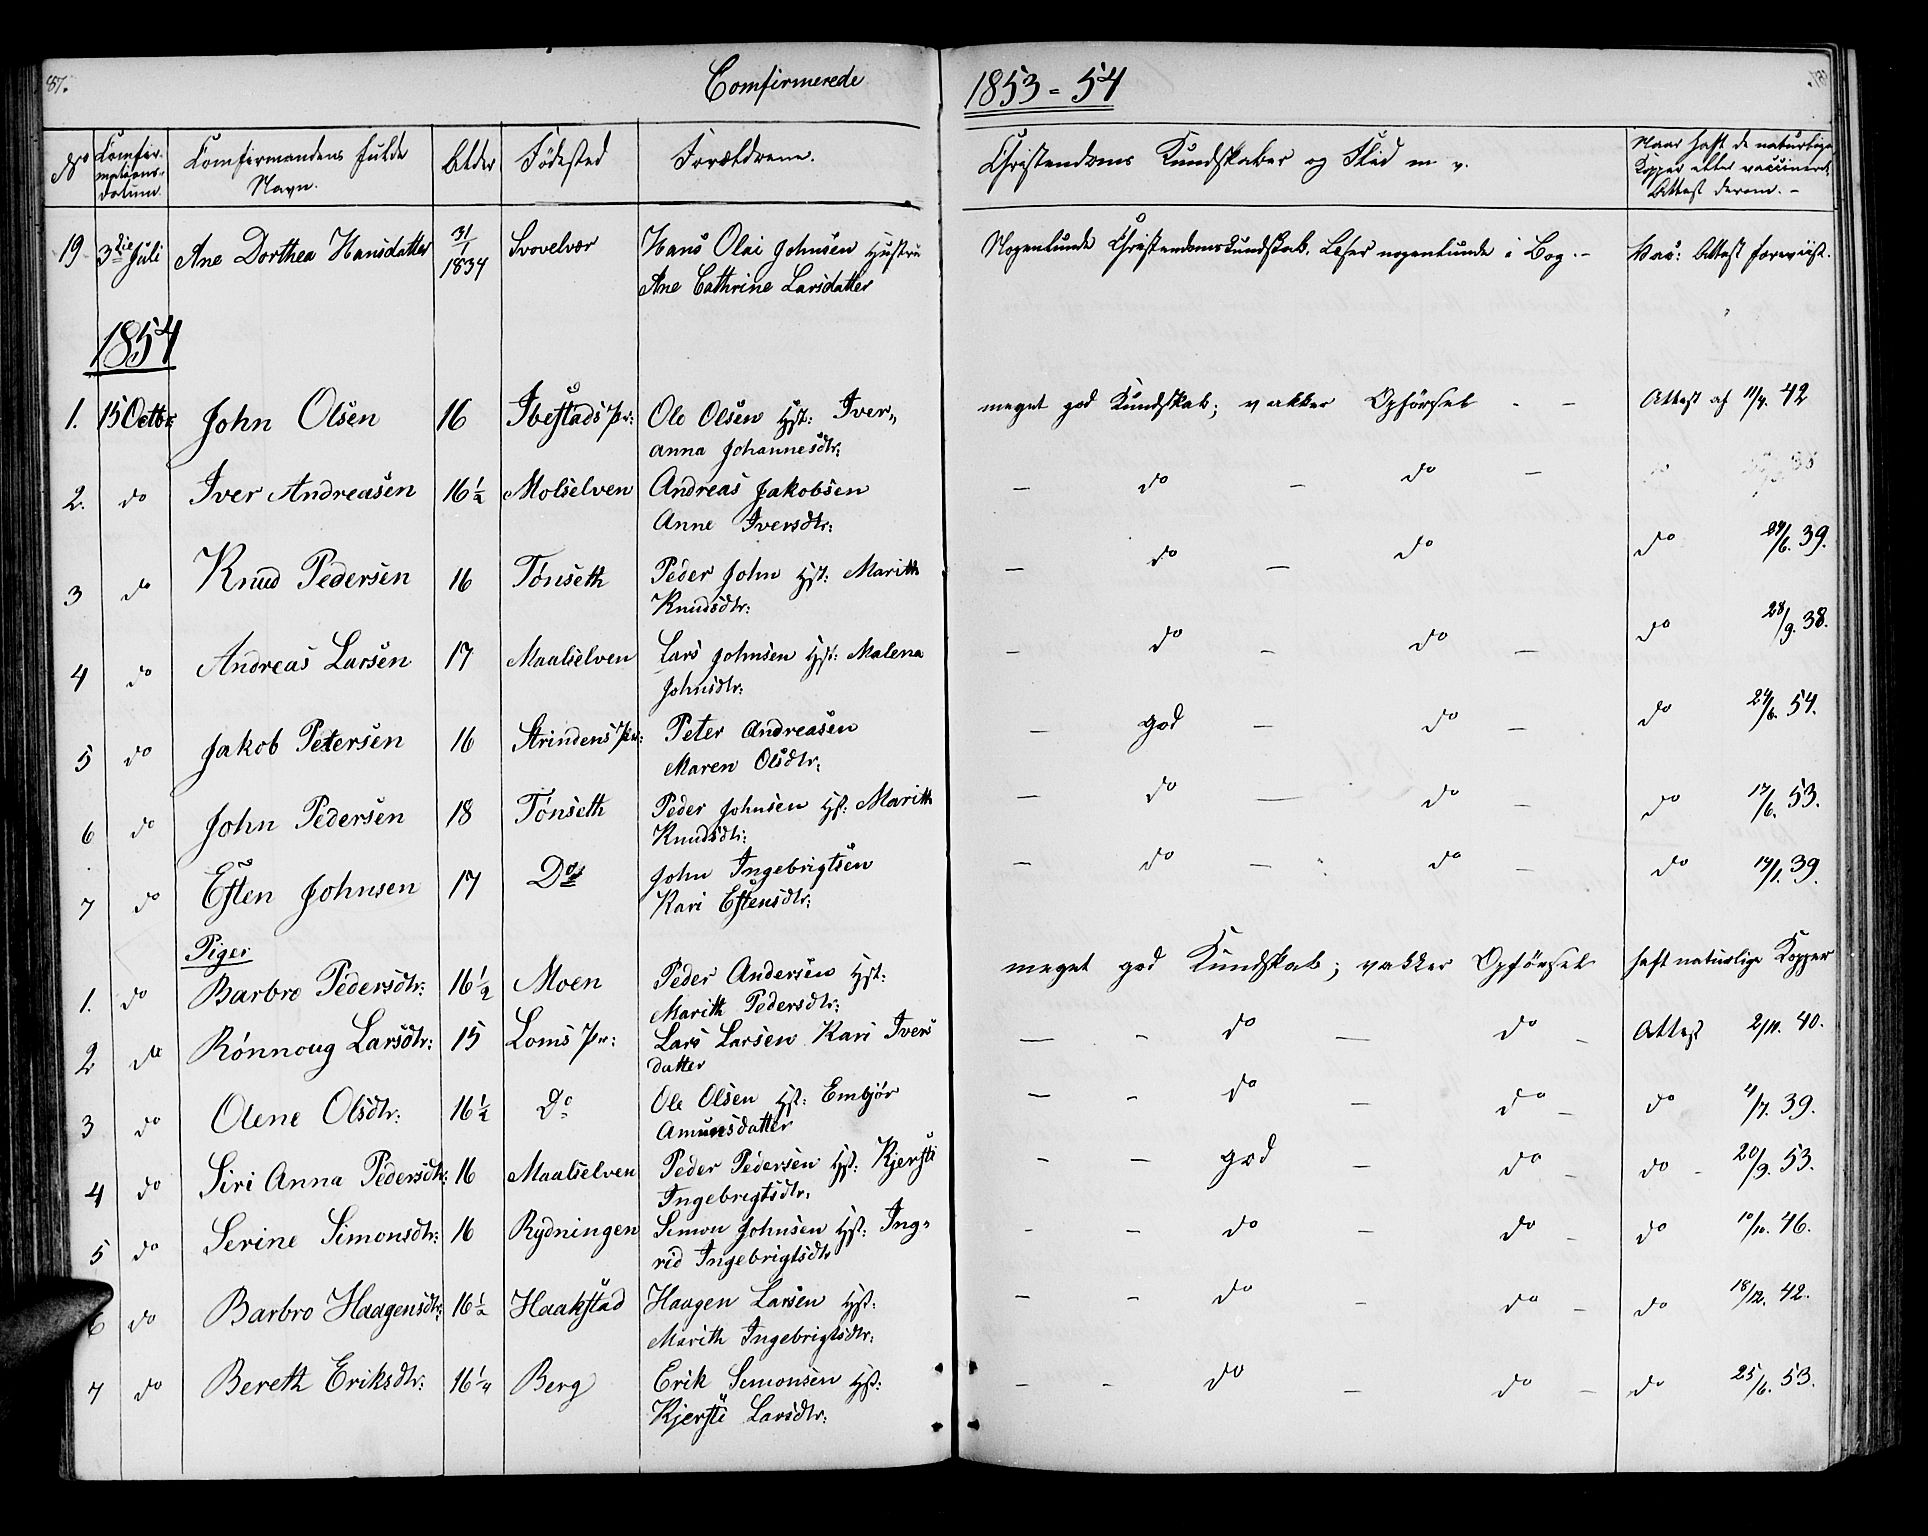 87.
Comfirmerede 1853 = 54
No Comfirmations-datum. Comfirmandens fulde Navn. Alder Fødested Forældrene. Christendoms Kundskaber og Flid m v. Naar haft de naturlige Kopper eller vaccinered, Attest derom. -
19 3die Juli Ane Dorthea Hansdatter 31/1 1834 Svovelvær Hans Olai Johnsen Hustru Nogenlunde Christendomskundskab. Læser nogenlunde i Bog. - Vac: Attest foreviist.
Ane Cathrine Larsdatter
1854
1. 15 Octbr John Olsen 16 Ibestads Pr: Ole Olsen Hst: Iver- meget god Kundskab; vakker Opførsel - - Attest af 11/4. 42
anna Johannesdtr:
2. do Iver Andreasen 16½ Molselven Andreas Jakobsen - do - do - do
Anne Iversdtr:
3 do Knud Pedersen 16 Tønseth Peder John Hst: Marith - do - do do 24/6. 39.
Knudsdtr:
4 do Andreas Larsen 17 Maalselven Lars Johnsen Hst: Malena - do - do - do 28/9. 38.
Johnsdtr:
5 do Jakob Petersen 16 Strindens Pr: Peter Andreasen - god - do - do 24/6. 54.
Maren Olsdtr:
6 do John Pedersen 18 Tønseth Peder Johnsen Hst: Marith - do - do - do 17/6. 53.
Knudsdtr:
7 do Esten Johnsen 17 Do John Ingebrigtsen - do - do - do 14/1. 39.
Kari Estensdtr:
Piger
1. do Barbro Pedersdtr: 16½ Moen Peder Andersen Hst: meget god Kundskab; vakker Opførsel haft naturlige Kopper
Marith Pedersdtr:
2 do Rønnoug Larsdtr: 15 Loms Pr: Lars Larsen Kari Ivers - - do - do - Attest 2/11. 40.
datter
3 do Olene Olsdtr: 16½ Do Ole Olsen Hst: Embjør - - do - do - do 4/7. 39.
Amunsdatter
4 do Siri Anna Pedersdtr: 16 Maalselven Peder Pedersen Hst: Kjersti - - god - do - do - 20/9. 53.
Ingebrigtsdtr:
5 do Serine Simonsdtr: 16 Rydningen Simon Johnsen Hst: Ing- - - do - do - do 10/10. 46.
rid Ingebrigtsdtr
6 do Barbro Haagensdtr: 16½ Haakstad Haagen Larsen Hst: - - do - do - do 18/12. 42.
Marith Ingebrigtsdtr:
7 do Bereth Eriksdtr: 16¼ Berg Erik Simonsen Hst: - - do - do - do 25/6. 53.
Kjersti Larsdtr: